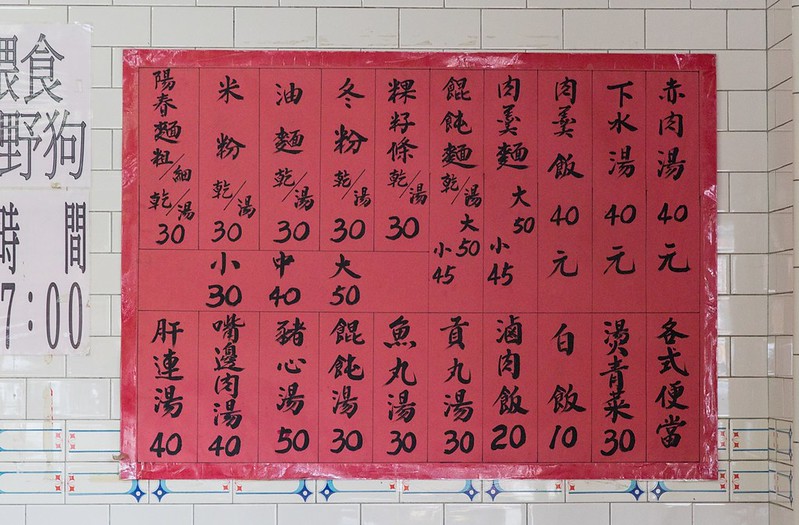 赤肉湯 40元
下水湯 40元
肉羹飯 40元
肉羹麵 大50 小45
餛飩麵 乾/湯 大50 小45
粿籽條 乾/湯 30
冬粉 乾/湯 30
油麵 乾/湯 30
米粉 乾/湯 30
陽春麵 粗/細 乾/湯 30
大50
中40
小30
各式便當
燙青菜 30
白飯 10
滷肉飯 20
貢丸湯 30
魚丸湯 30
餛飩湯 30
豬心湯 50
嘴邊肉湯 40
肝連湯 40
餵食
野狗
時間
7:00